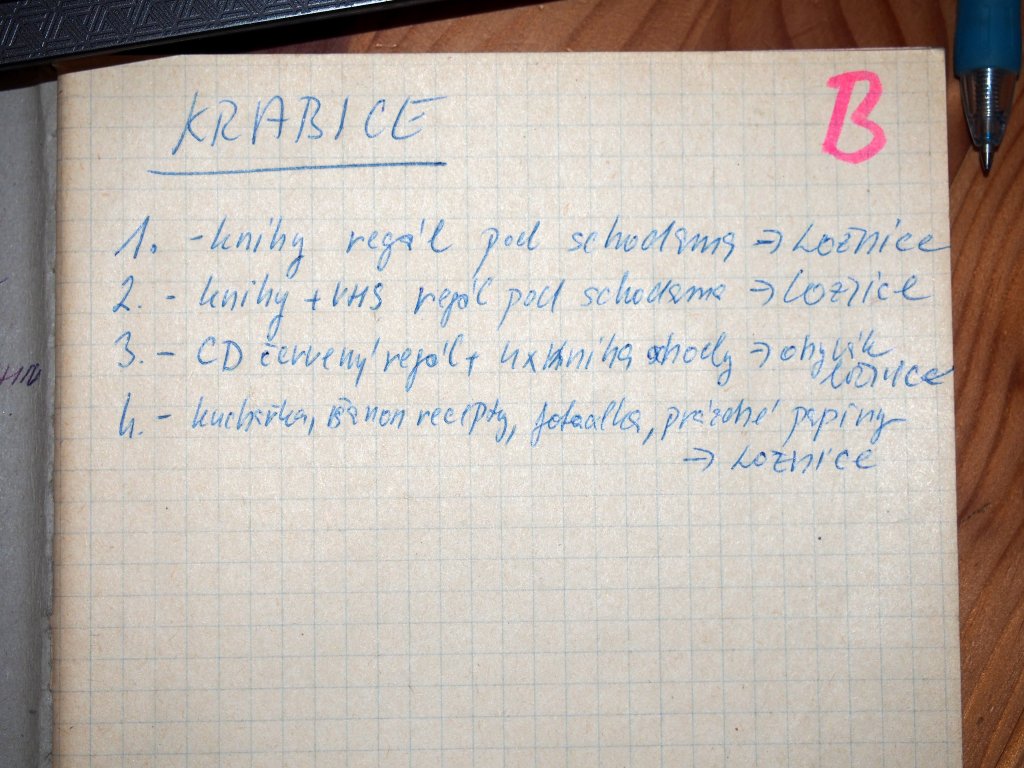 KRABICE
B
1. - knihy regál pod schodama → Loznice
2. - knihy + VHS regál pod schodama → Loznice
3. - CD červený regál + 4x kniha schody → obyvák
loznice
4. - kuchařka, šanon recepty, fotoalba, prázdné papíry
→ Loznice